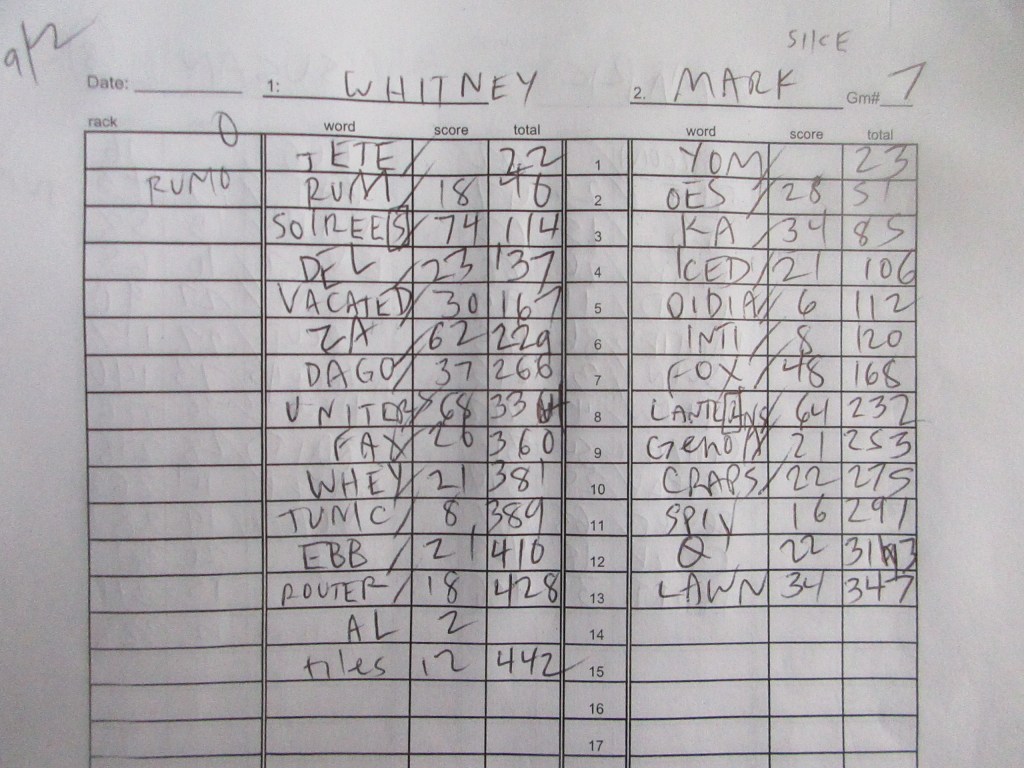 9/2 SIICE
Date: 1: WHITNEY 2. MARK Gm# 7
rack 0 word score total word score total
JETE 22 1 YOM 23
RUMO RUM 18 40 2 OES 28 51
SOIREES 74 114 3 KA 34 85
DEL 23 137 4 ICED 21 106
VACATED 30 167 5 OIDIA 6 112
ZA 62 229 6 INTI 8 120
DAGO 37 266 7 FOX 48 168
UNITER 68 334 8 LANTERNS 64 232
FAX 26 360 9 GENOM 21 253
WHEY 21 381 10 CRAPS 22 275
TUNIC 8 389 11 SPIY 16 291
EBB 21 410 12 Q 22 313
ROUTER 18 428 13 LAWN 34 347
AL 2 14
tiles 12 442 15
16
17